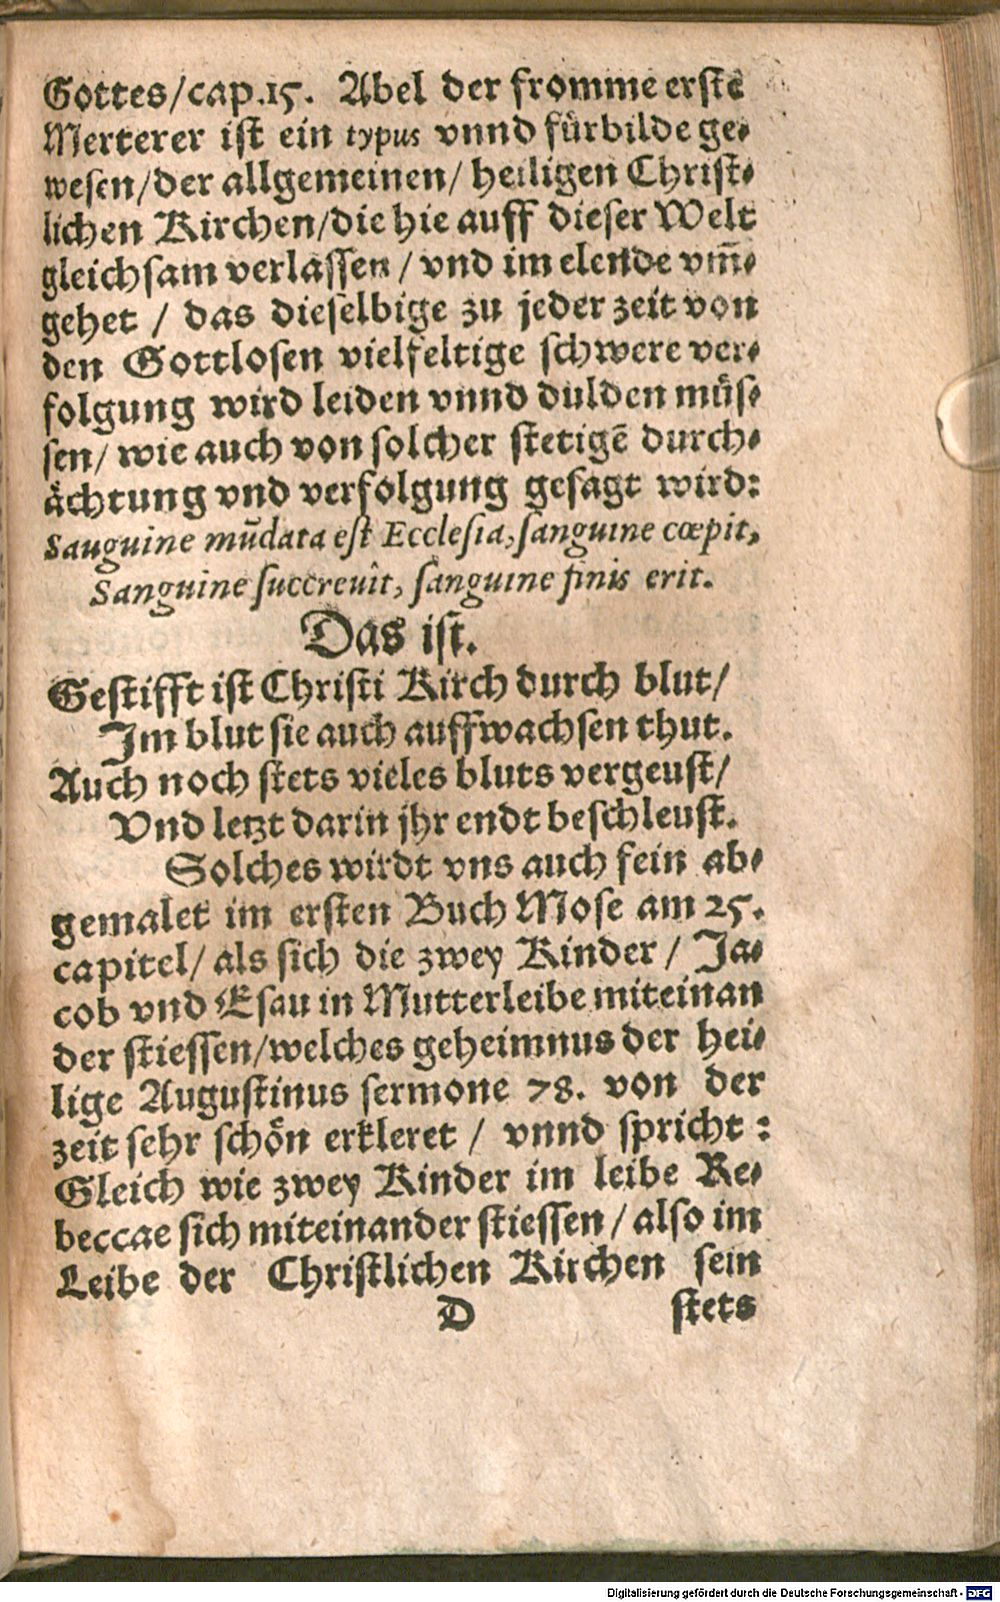 Gottes/cap.15. Abel der fromme erstē
Merterer ist ein typus vnnd fürbilde ge⸗
wesen/der allgemeinen/ heiligen Christ⸗
lichen Kirchen/die hie auff dieser Welt
gleichsam verlassen / vnd im elende vm̄⸗
gehet / das dieselbige zu jeder zeit von
den Gottlosen vielfeltige schwere ver⸗
folgung wird leiden vnnd dulden müs⸗
sen/ wie auch von solcher stetigē durch⸗
ächtung vnd verfolgung gesagt wird:
Sauguine mūdata est Ecclesia, sanguine cœpit,
Sanguine succrevit, sanguine finis erit.
Das ist.
Gestifft ist Christi Kirch durch blut/
Im blut sie auch auffwachsen thut.
Auch noch stets vieles bluts vergeust/
Vnd letzt darin jhr endt beschleust.
Solches wirdt vns auch fein ab⸗
gemalet im ersten Buch Mose am 25.
capitel/ als sich die zwey Kinder / Ja⸗
cob vnd Esau in Mutterleibe miteinan
der stiessen/welches geheimnus der hei⸗
lige Augustinus sermone 78. von der
zeit sehr schön erkleret / vnnd spricht :
Gleich wie zwey Kinder im leibe Re⸗
beccae sich miteinander stiessen / also im
Leibe der Christlichen Kirchen sein
D stets
Digitalisierung gefördert durch die Deutsche Forschungsgemeinschaft - DFG